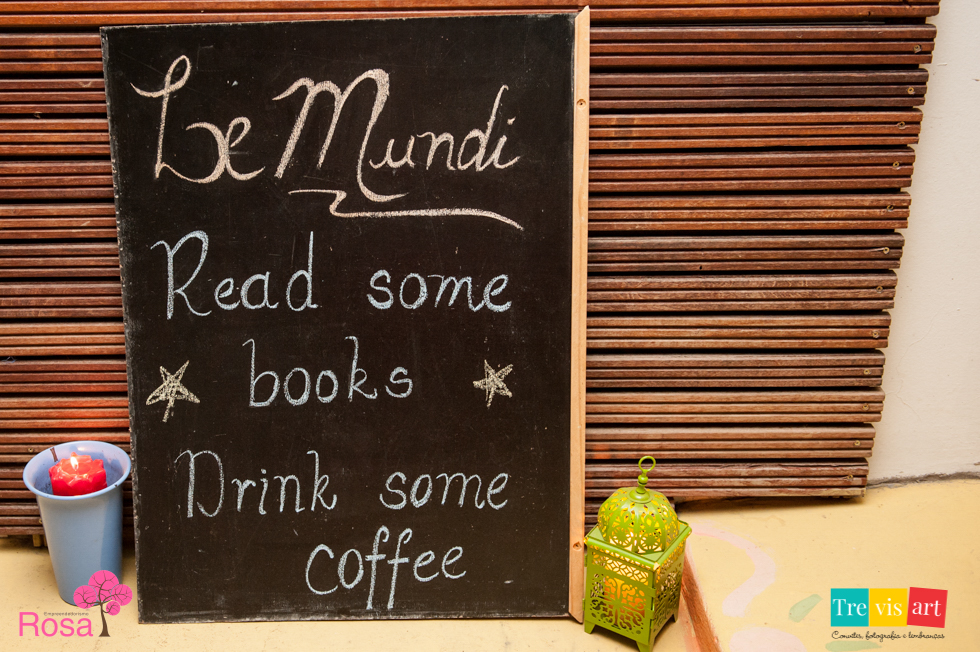 Le Mundi
Read some
books
Drink some
coffee
Empreendedorismo
Rosa
Tre vis art
Convites, fotografia e lembranças